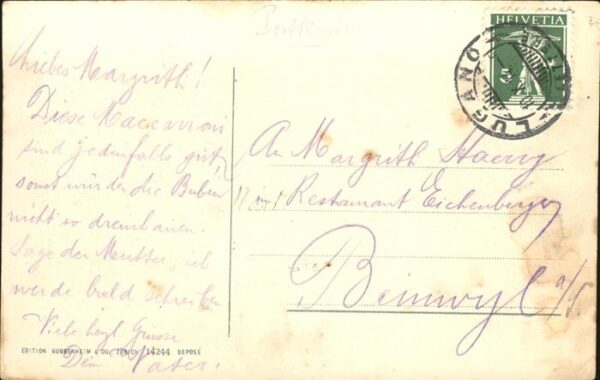 HELVETIA
5
LUGANO
Liebes Margrith!
Diese Maccaroni
sind jedenfalls gut,
sonst würden die Buben
nicht so dreinhauen.
Sage der Mutter, ich
werde bald schreiben
Viele herzl Grüsse
Dein Vater.
An Margrith Haerry
im Restaurant Eichenberger
Beinwyl a/S.
EDITION GUGGENHEIM & Co., ZÜRICH 14244 DEPOSÉ